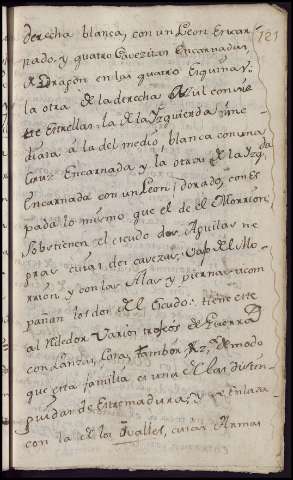 121
derecha blanca, con un Leon Encar-
nado, y quatro Cavezitas Encarnadas,
de Dragon en las quatro Esquinas.
la otra de la derecha Azul con sie
te estrellas. la de la Yzquierda ime-
diata à la del medio, blanca con una
Cruz Encarnada, y la otra de la Yzqda
Encarnada con un Leon, dorado, con es
pada lo mismo que el de el Morrion;
Sobstienen el escudo dos Aguilas ne
gras cuias dos cavezas, del Mo-
rrion, y con las Alas y piernas acom
pañan los dos del Escudo: tiene este
al rededor Varios trofeos de Guerra
con Lanzas, Cotas, tambor, &z, de modo
que esta familia es una de las distin-
guidas de Estremadura, y se enlaza
con la de los Valles, cuias Armas